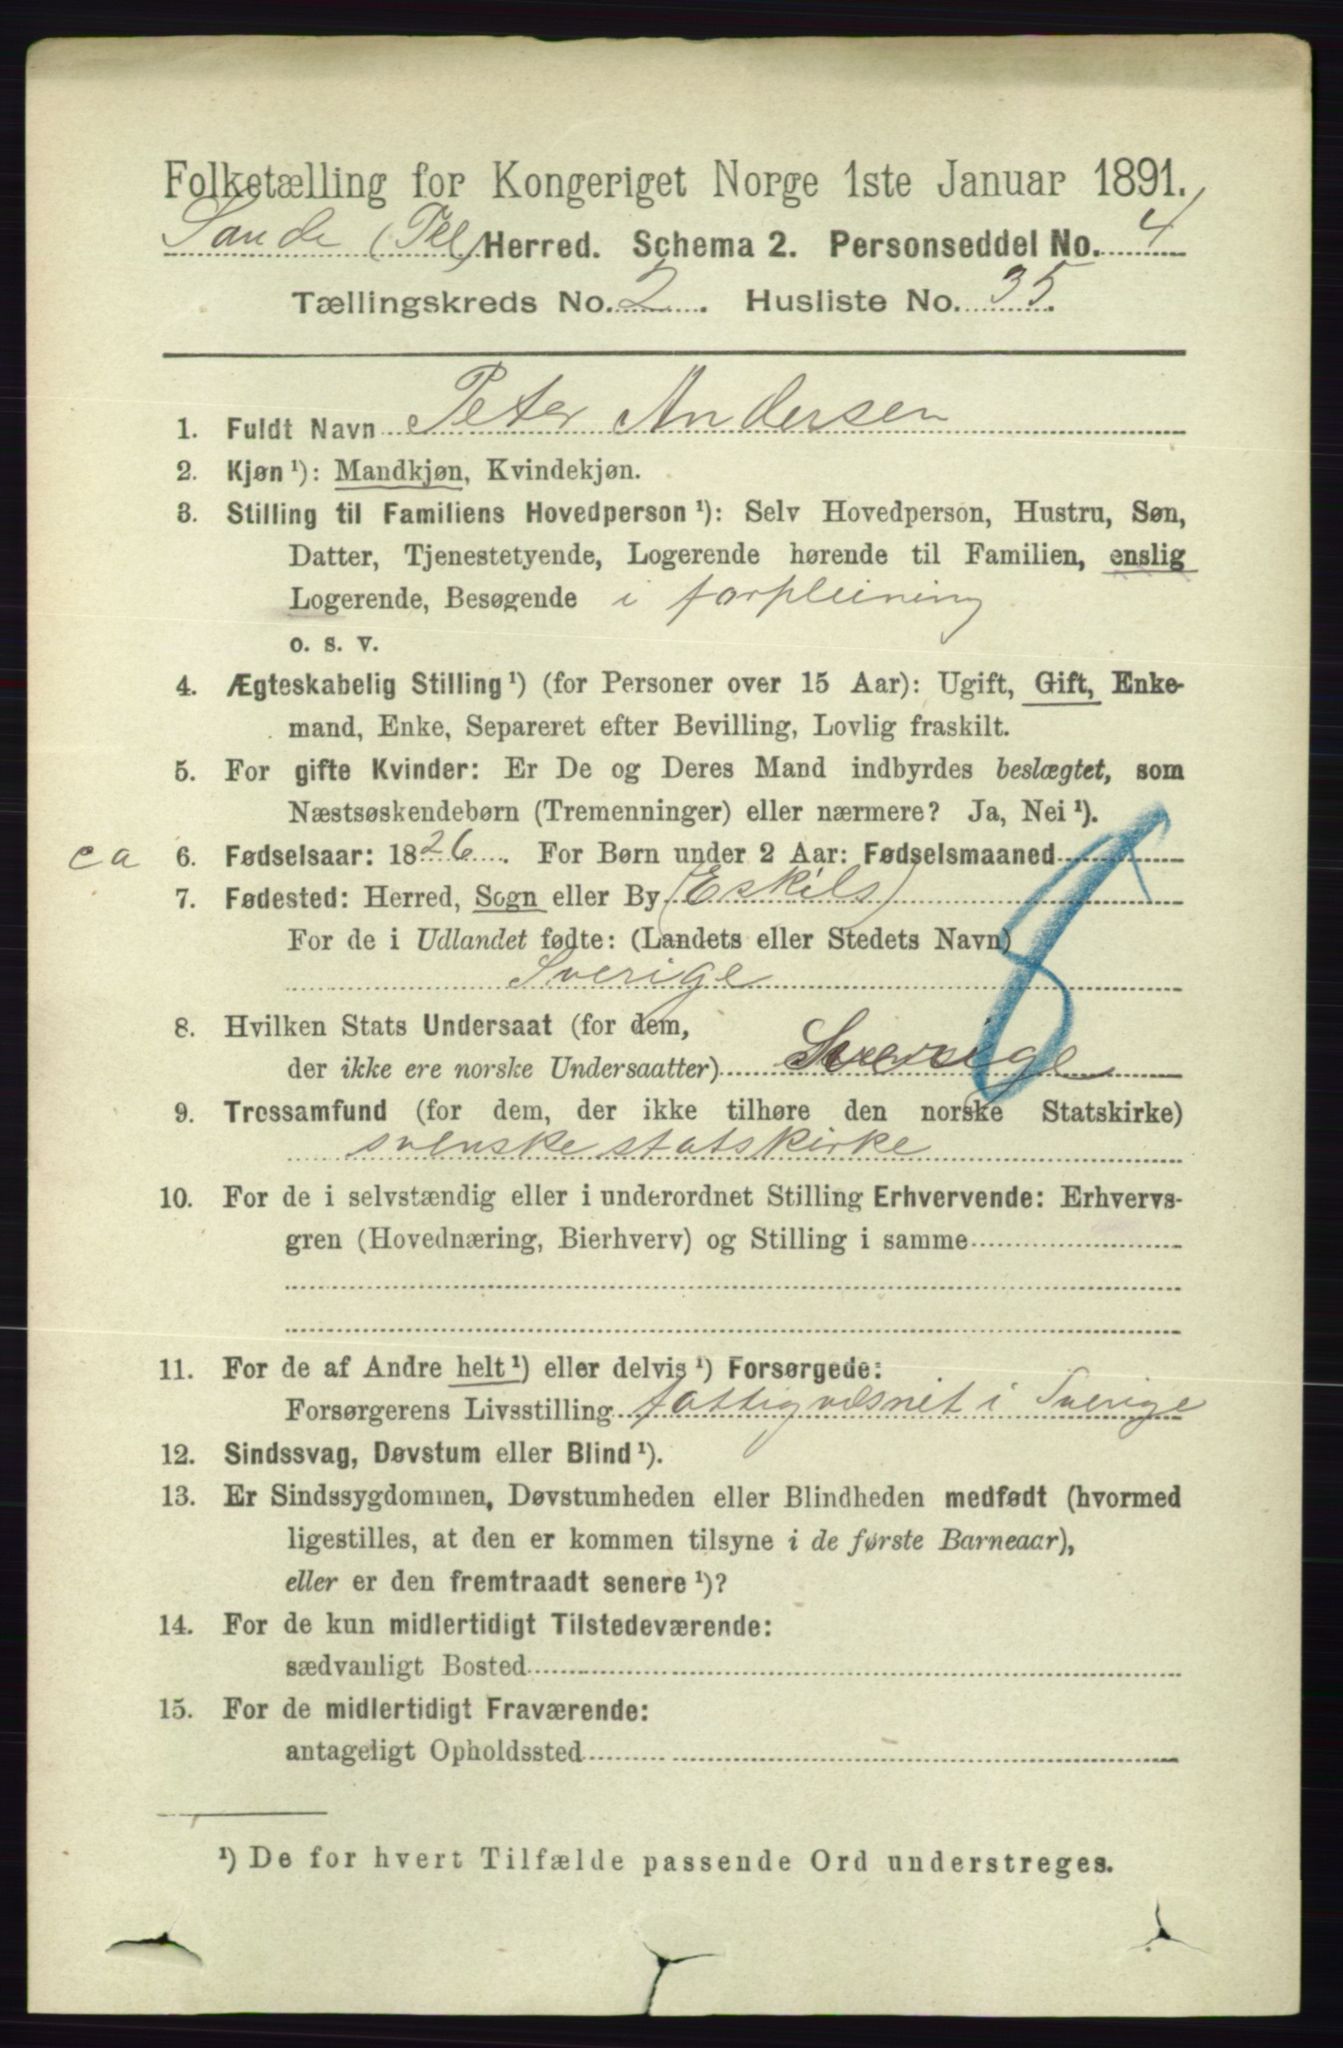 Folketælling for Kongeriget Norge 1ste Januar 1891.
Sande (Tel) Herred. Schema 2. Personseddel No. 4
Tællingskreds No. 2. Husliste No. 35.
1. Fuldt Navn Peter Andersen
2. Kjøn ¹): Mandkjøn, Kvindekjøn.
3. Stilling til Familiens Hovedperson ¹): Selv Hovedperson, Hustru, Søn,
Datter, Tjenestetyende, Logerende hørende til Familien, enslig
Logerende, Besøgende i forpleining
o. s. v.
4. Ægteskabelig Stilling ¹) (for Personer over 15 Aar): Ugift, Gift, Enke-
mand, Enke, Separeret efter Bevilling, Lovlig fraskilt.
5. For gifte Kvinder: Er De og Deres Mand indbyrdes beslægtet, som
Næstsøskendebørn (Tremenninger) eller nærmere? Ja, Nei ¹).
ca 6. Fødselsaar: 1826. For Børn under 2 Aar: Fødselsmaaned
7. Fødested: Herred, Sogn eller By (Eskils)
For de i Udlandet fødte: (Landets eller Stedets Navn)
Sverige
8. Hvilken Stats Undersaat (for dem,
der ikke ere norske Undersaatter) Sverige
9. Trossamfund (for dem, der ikke tilhøre den norske Statskirke)
svenske statskirke
10. For de i selvstændig eller i underordnet Stilling Erhvervende: Erhvervs-
gren (Hovednæring, Bierhverv) og Stilling i samme
11. For de af Andre helt ¹) eller delvis ¹) Forsørgede:
Forsørgerens Livsstilling fattigvæsnet i Sverige
12. Sindssvag, Døvstum eller Blind ¹).
13. Er Sindssygdommen, Døvstumheden eller Blindheden medfødt (hvormed
ligestilles, at den er kommen tilsyne i de første Barneaar),
eller er den fremtraadt senere ¹)?
14. For de kun midlertidigt Tilstedeværende:
sædvanligt Bosted
15. For de midlertidigt Fraværende:
antageligt Opholdssted
¹) De for hvert Tilfælde passende Ord understreges.